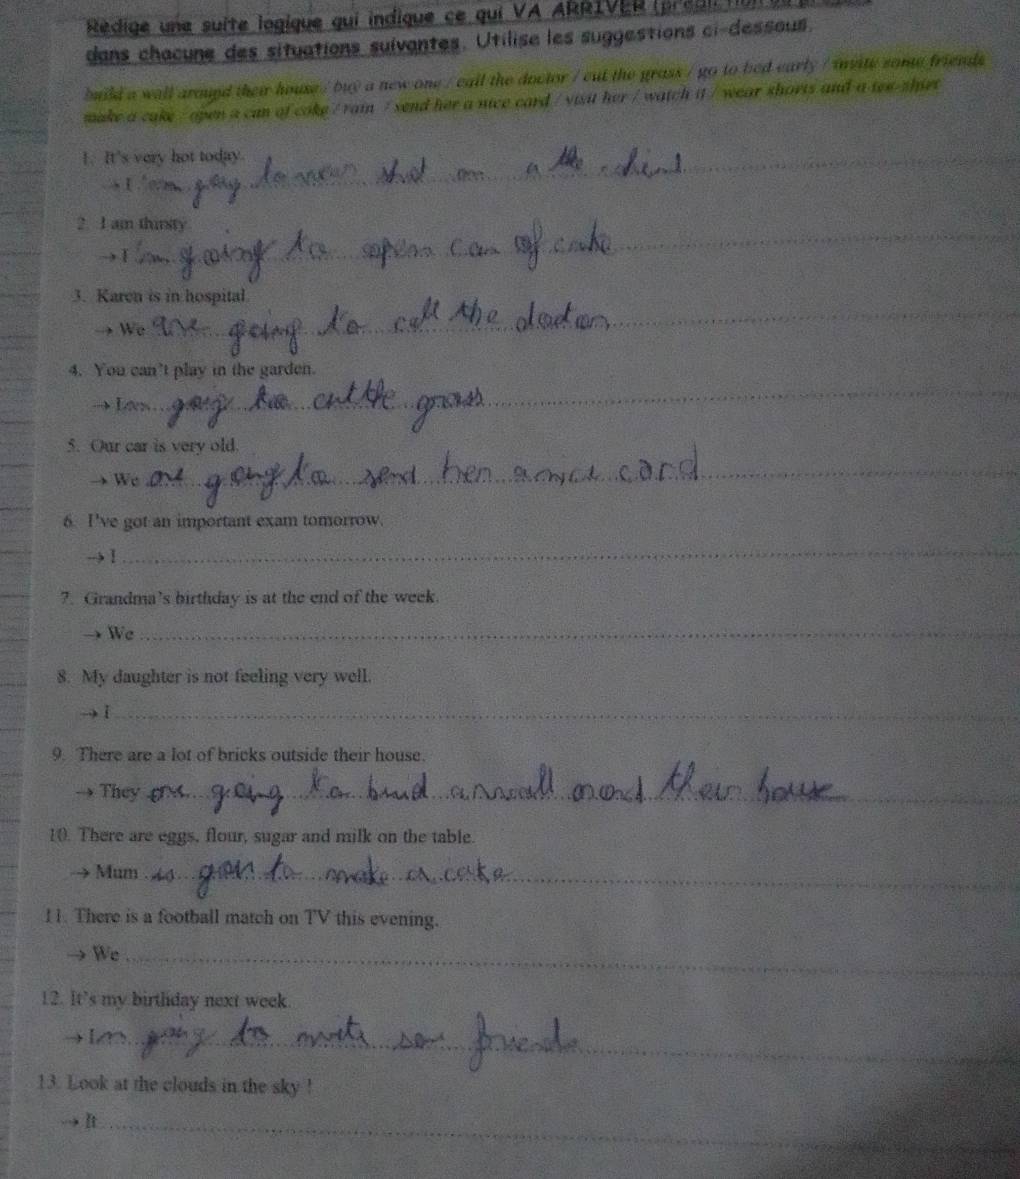 Rédige une suite logique qui indique ce qui VA ARRIVER
dans chacune des situations suivantes. Utilise les suggestions ci-dessous.
build a wall around their house / buy a new one / call the doctor / cut the grass / go to bed early / invite some friends
make a cake / open a can of coke / rain / send her a nice card / visit her / watch it / wear shorts and a tee-shirt
1. It's very hot today.
→ I
2. I am thirsty
→ I 'm going to open can of coke
3. Karen is in hospital.
→ We are going to call the doctor
4. You can't play in the garden.
→ I am going to cut the grass
5. Our car is very old.
→ We are going to send her a nice card
6. I've got an important exam tomorrow.
→ I
7. Grandma's birthday is at the end of the week.
→ We
8. My daughter is not feeling very well.
→ I
9. There are a lot of bricks outside their house.
→ They are going to a wall their house
10. There are eggs, flour, sugar and milk on the table.
→ Mum is to make a cake
11. There is a football match on TV this evening.
→ We
12. It's my birthday next week.
→ Im going to friends
13. Look at the clouds in the sky !
→ It